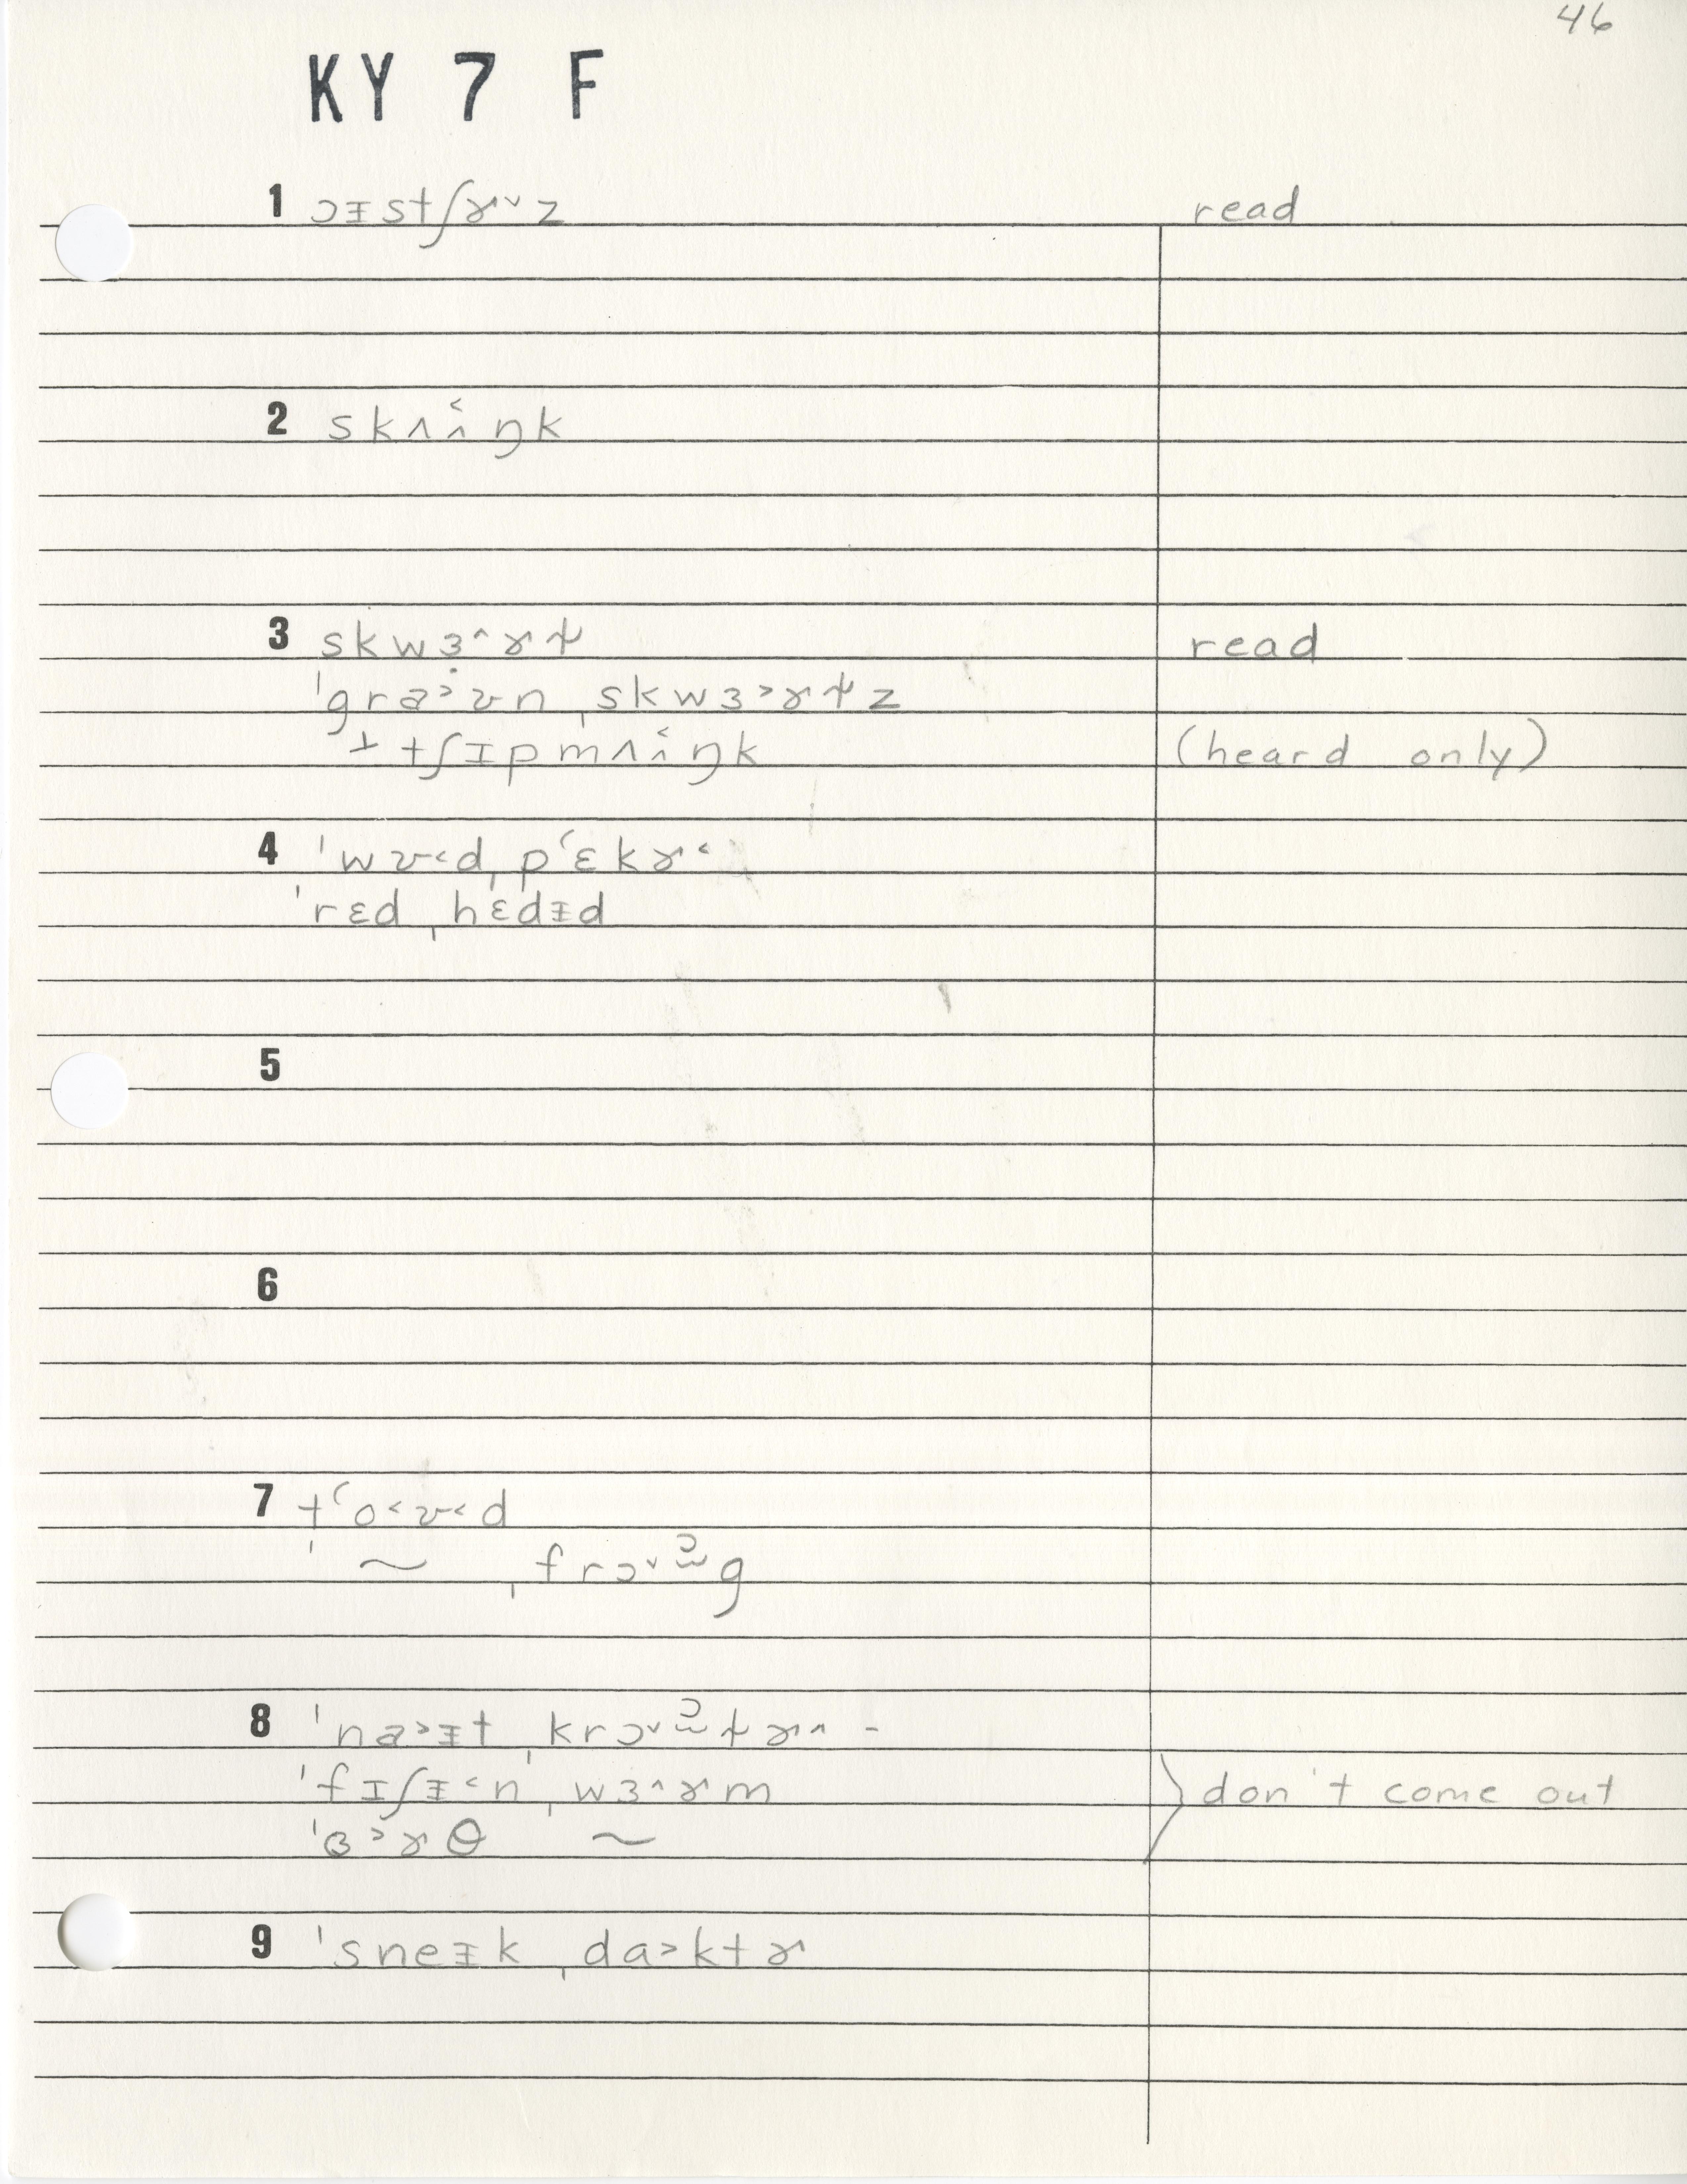 46
KY 7 F
1 ɔᵻstʃɚ˅z read
2 skʌɪ̯˂ŋk
3 skwɜ˄ɚɫ read
ˈgra˃ʊn ˌskwɜ˃ɚɫz
⊥ tʃɪpmʌɪ̯˂ŋk (heard only)
4 ˈwʊ˂d ˌpʻɛkɚ˂
ˈrɛd ˌhɛdᵻd
5
6
7 tʻo˂ʊ˂d
ˈ ~ ˌfrɔ˅ɔ̯g
8 ˈna˃ᵻt ˌkrɔ˅ɔ̯ɫɚ˄ -
ˈfɪʃᵻ˂n ˌwɜ˄ɚm don't come out
ˈɞ˃ɚθ ~
9 ˈsneᵻk ˌdɑ˃ktɚ